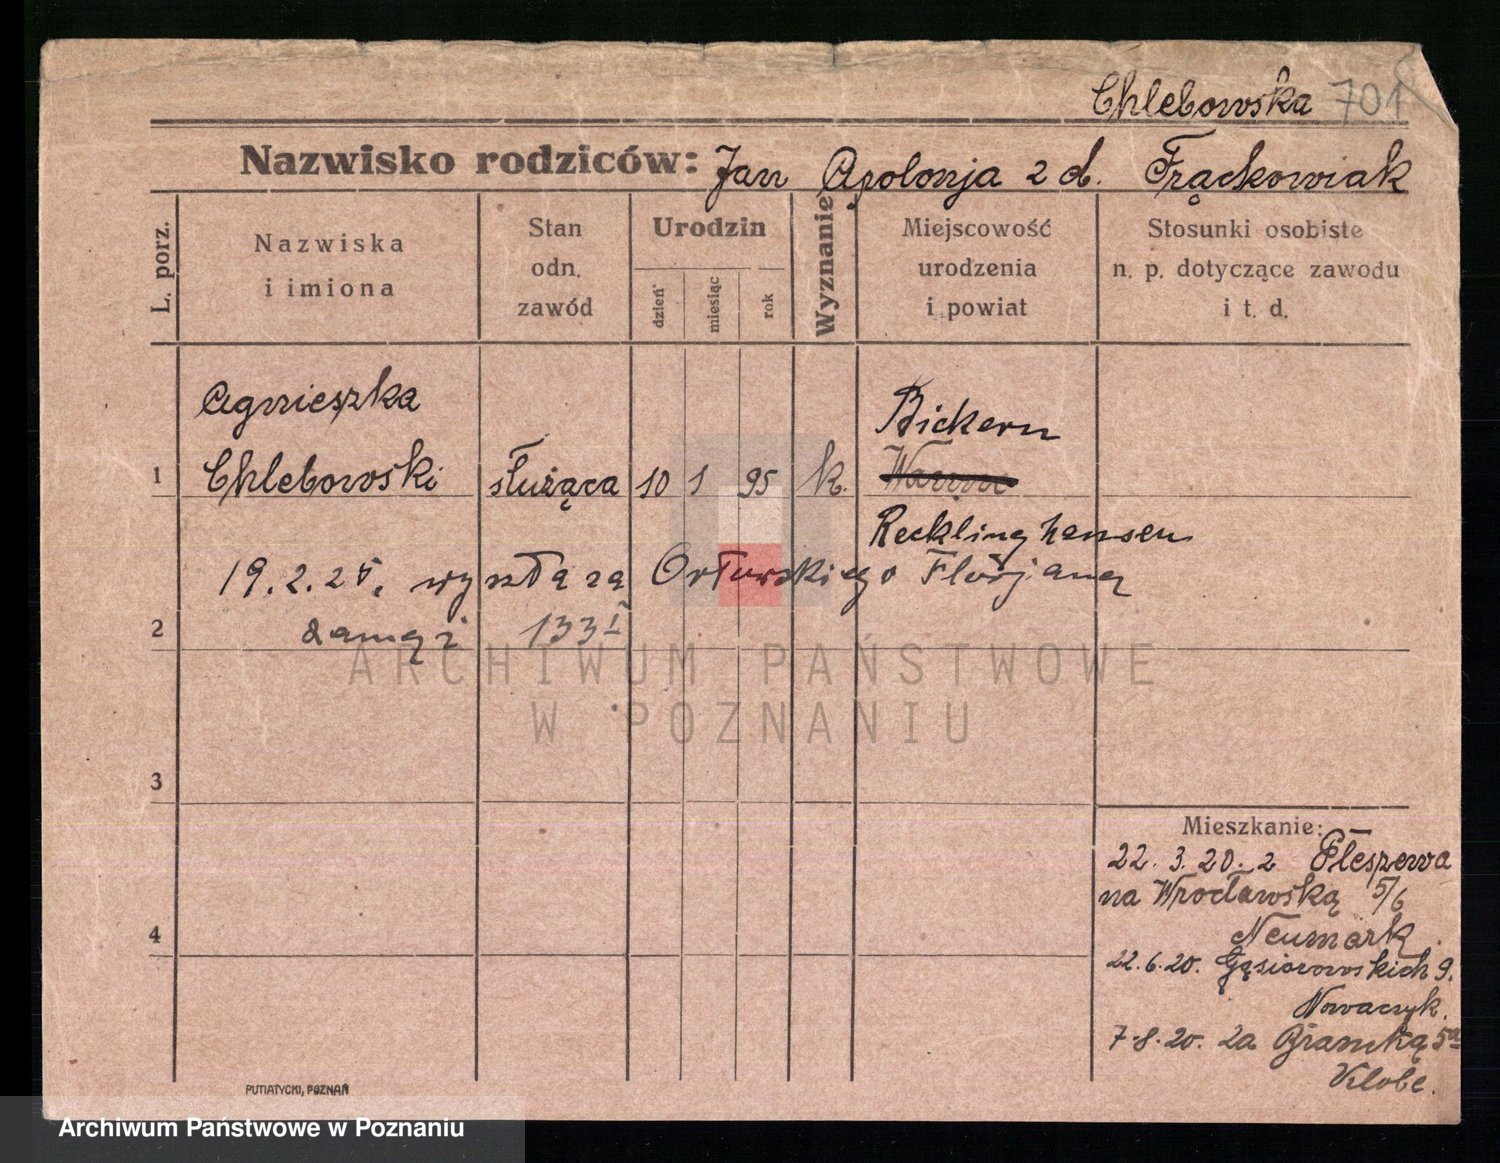 Chlebowska 701
Nazwisko rodziców: Jan Apolonja z d. Frąckowiak
L. porz.
Nazwiska
i imiona
Stan
odn.
zawód
Urodzin
dzień
miesiąc
rok
Wyznanie
Miejscowość
urodzenia
i powiat
Stosunki osobiste
n. p. dotyczące zawodu
i t. d.
Agnieszka
Bickern
1 Chlebowski służąca 10 1 95 k.
Recklinghausen
19.2.25. wyszła za Orłowskiego Florjana
2 zamąż 133 I
3
4
Mieszkanie:
22.3.20. z Pleszewa
na Wrocławską 5/6
Neumark
22.6.20. Gąsiorowskich 9.
Nowaczyk.
7.8.20. za Bramką 5a
Klobe.
PUTIATYCKI, POZNAŃ
ARCHIWUM PAŃSTWOWE
W POZNANIU
Archiwum Państwowe w Poznaniu